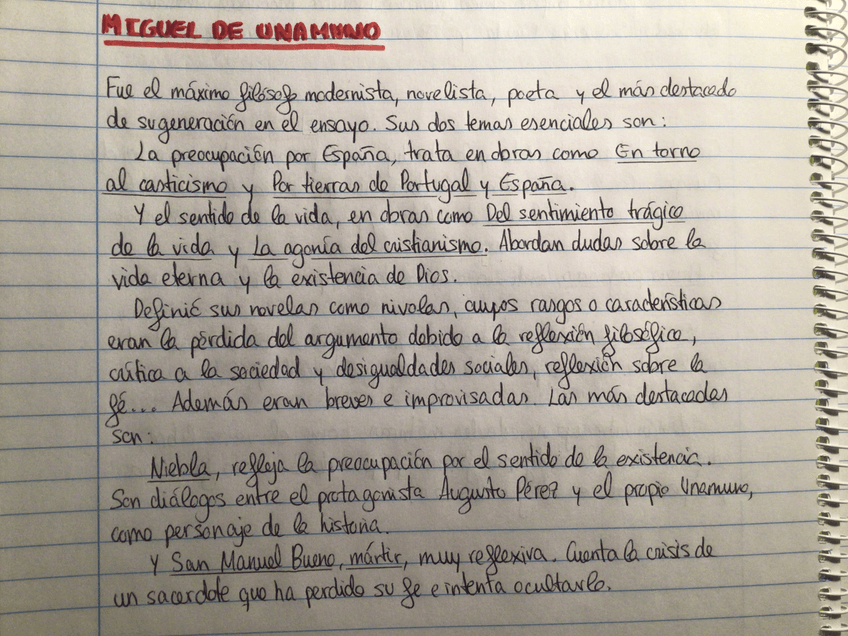 MIGUEL DE UNAMUNO
Fue el máximo filósofo modernista, novelista, poeta y el más destacado
de su generación en el ensayo. Sus dos temas esenciales son:
La preocupación por España, trata en obras como En torno
al casticismo y Por tierras de Portugal y España.
Y el sentido de la vida, en obras como Del sentimiento trágico
de la vida y La agonía del cristianismo. Abordan dudas sobre la
vida eterna y la existencia de Dios.
Definió sus novelas como nivolas, cuyos rasgos o características
eran la pérdida del argumento debido a la reflexión filosófica,
crítica a la sociedad y desigualdades sociales, reflexión sobre la
fé... Además eran breves e improvisadas. Las más destacadas
son:
Niebla, refleja la preocupación por el sentido de la existencia.
Son diálogos entre el protagonista Augusto Pérez y el propio Unamuno,
como personaje de la historia.
Y San Manuel Bueno, mártir, muy reflexiva. Cuenta la crisis de
un sacerdote que ha perdido su fe e intenta ocultarlo.